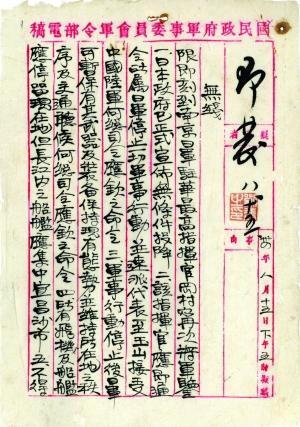 國民政府軍事委員會軍令部電稿
即發
八、十五
年八月十五日下午五時
無綫
限即刻到南京日軍駐華最高指揮官岡村寧次將軍鑒
一日本政府已正式宣佈無條件投降 二該指揮官應即通
令所屬日軍停止一切軍事行動 並迅派代表至玉山接受
中國陸軍何總司令應欽之命令 三軍事行動停止後日軍
可暫保有其武器及裝備保持現有態勢並維持所在地之秩
序及交通聽候何總司令應欽之命令 四所有飛機及船艦
應停留現在地但長江內之船艦應集中宜昌沙市 五不得